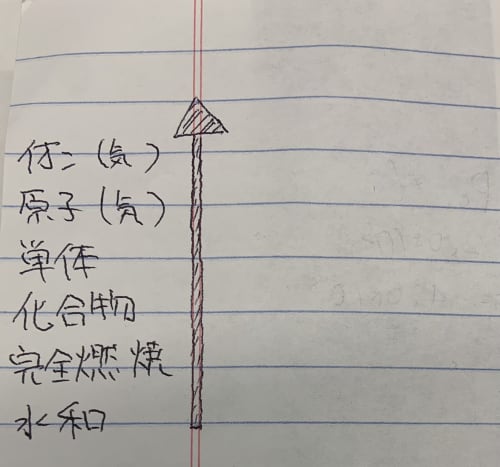 イオン（気）
原子（気）
単体
化合物
完全燃焼
水和